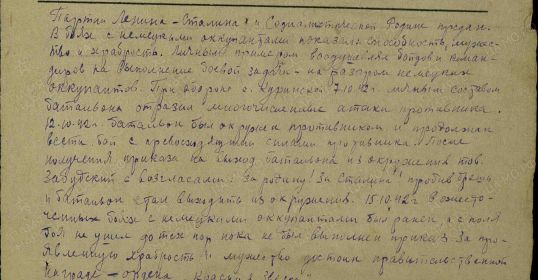 Партии Ленина - Сталина и Социалистической Родине предан.
В боях с немецкими оккупантами показал способность, мужес-
тво и храбрость. Личным примером воодушевлял бойцов и коман-
диров на выполнение боевой задачи - на разгром немецких
оккупантов. При обороне с. Куринской 7.10.42г. личным составом
батальона отразил многочисленные атаки противника.
12.10.42г. батальон был окружен противником и продолжал
вести бой с превосходящими силами противника. После
получения приказа на выход батальона из окружения тов.
Забудский с возгласами: За родину! За Сталина! пробив брешь
и батальон стал выходить из окружения. 15.10.42г. В ожесто-
ченных боях с немецкими оккупантами был ранен, и с поля
боя не ушел до тех пор пока не был выполнен приказ. За про-
явленную храбрость и мужество достоин правительственной
награде - ордена